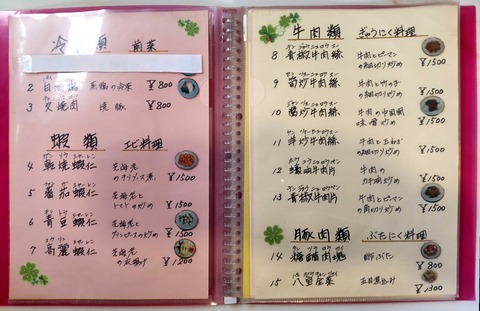 冷 類 前菜
2 白 鶏 蒸鶏の冷菜 ¥800
3 叉焼肉 焼豚 ¥800
蝦類 エビ料理
4 乾焼蝦仁 芝海老のチリソース煮 ¥1500
5 蕃茄蝦仁 芝海老とトマトの炒め ¥1500
6 青豆蝦仁 芝海老とグリンピースの炒め ¥1500
7 高麗蝦仁 芝海老の衣揚げ ¥1200
牛肉類 ぎゅうにく料理
8 青椒牛肉絲 牛肉とピーマンの細切り炒め ¥1500
9 筍炒牛肉絲 牛肉と竹の子の細切り炒め ¥1500
10 醤炒牛肉絲 牛肉の中国風味噌炒め ¥1500
11 洋炒牛肉絲 牛肉と玉ねぎの細切り炒め ¥1500
12 蠔油牛肉片 牛肉のカキ油炒め ¥1500
13 青椒牛肉片 牛肉とピーマンの角切り炒め ¥1500
豚肉類 ぶたにく料理
14 糖醋肉塊 酢ぶた ¥800
15 八宝全菜 五目煮込み ¥1300